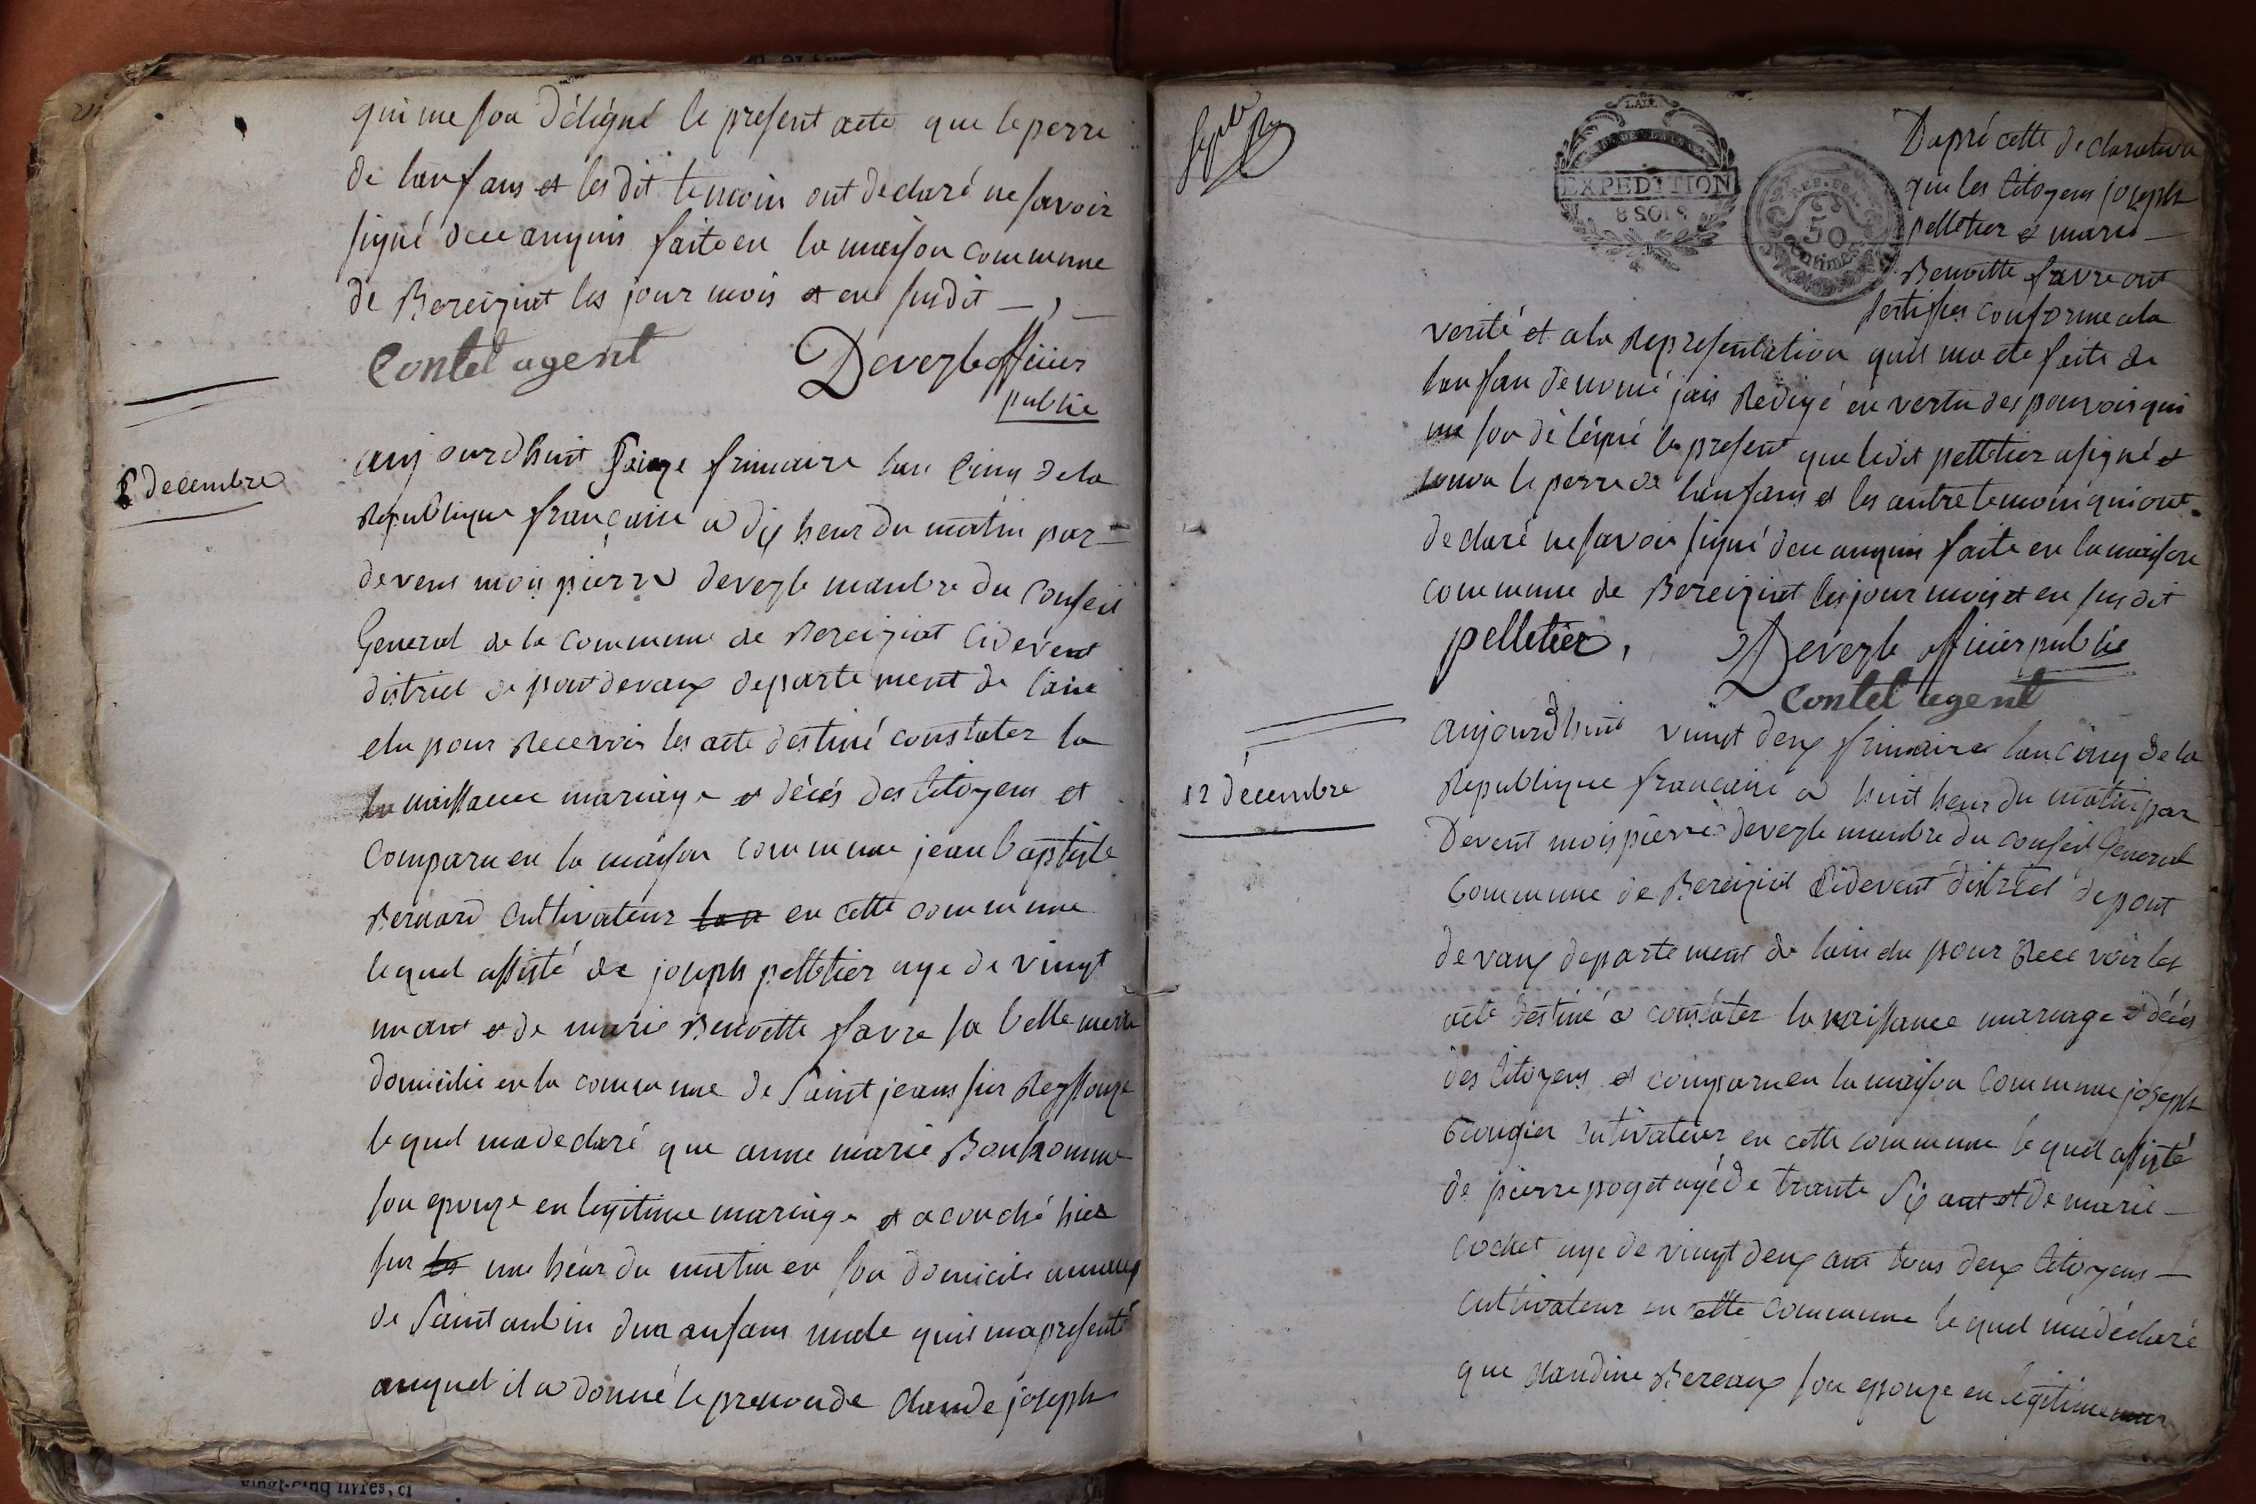 qui me son délégué le present acte que le perre
de lanfans et les dit temoin ont declaré ne savoir
signé dece anquis faite en la maison commune
de Bereiziat les jour mois et en susdit
Contet agent
Deveyle officier
publie
6 decembre
aujourdhuit seize frimaire lan cinq de la
Republique française a dix heur du matin par
devens mois pierre deveyle manbre du Conseil
General de la commune de Bereiziat cidevent
district de pontdevaux departement de lain
elu pour Recevoir les acte destiné constater la
la naissance mariage et décés des Citoyens et
comparu en la maison commune jean baptiste
Bernard cultivateur en cette commune
lequel assisté de joseph pelletier age de vingt
un ant et de marie Benoitte favre sa belle merre
domicilié en la commune de Saint jeans sur Reyssouze
lequel ma declaré que anne marie Bonhomme
son epouze en legitime mariage et acouché hier
sur une héur du matin en son domicile
de Saint aubin dun anfans male quis mapresenté
auquel il a donné le prenon de Claude joseph
EXPEDITION
8 SOLS
50
centimes
Daprè cette declaration
que les Citoyens joseph
pelletier et marie
Benoitte favre ont
sertifies conforme a la
verité et a la Representation quil ma ete faite de
lanfan denomé jais Redigé en vertu des pouvois qui
me son délégué le present que ledit pelletier a signé et
nonon le perre de lanfans et les autre temoin qui ont
declaré ne savoir signé dece anquis faite en la maison
commune de Bereiziat les jour mois et en susdit
pelletier,
Deveyle officier publie
Contet agent
12 décembre
aujourdhuit vingt deux frimaire lan cinq de la
Republique francaise a huit heur du matin par
Devent mois pierre deveyle manbre du conseil General
Commune de Bereiziat Cidevent district de pont
devaux departement de lain elu pour Recevoir les
acte destiné a constater la naissance mariage et décés
des Citoyens et comparu en la maison Commune joseph
cultivateur en cette commune lequel assisté
de pierre poget agé de trante six ant et de marie
cochet age de vingt deux ant tous deux Citoyens
cultivateur en cette commune lequel ma déclaré
que claudine Bereaux son epouze en legitime mar